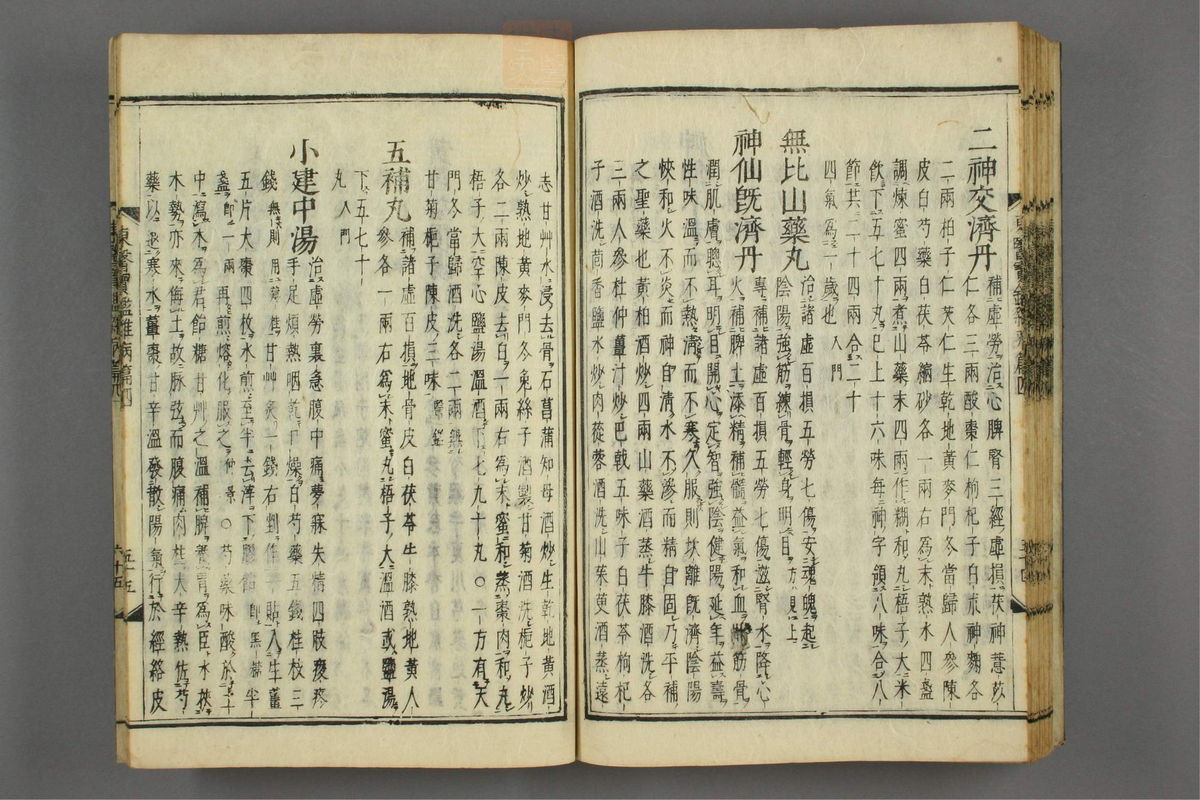 二神交濟丹 補虛勞治心脾腎三經虛損茯神薏苡
仁各三兩酸棗仁枸杞子白朮神麴各
二兩柏子仁芡仁生乾地黃麥門冬當歸人參陳
皮白芍藥白茯苓縮砂各一兩右爲末熟水四盞
調煉蜜四兩煮山藥末四兩作糊和丸梧子大米
飮下五七十丸已上十六味每神字領八味合八
節共二十四兩合二十
四氣爲一歲也 入門
無比山藥丸 治諸虛百損五勞七傷安魂魄起
陰陽强筋練骨輕身明目 方見上
神仙旣濟丹 專補諸虛百損五勞七傷滋腎水降心
火補脾土添精補髓益氣和血壯筋骨
潤肌膚聰耳明目開心定智强陰健陽延年益壽
性味溫而不熱淸而不寒久服則坎離旣濟陰陽
恊和火不炎而神自淸水不滲而精自固乃平補
之聖藥也黃柏酒炒四兩山藥酒蒸牛膝酒洗各
三兩人參杜仲薑汁炒巴戟五味子白茯苓枸杞
子酒洗茴香鹽水炒肉蓯蓉酒洗山茱萸酒蒸遠
志甘艸水浸去骨石菖蒲知母酒炒生乾地黃酒
炒熟地黃麥門冬兔絲子酒製甘菊酒洗梔子炒
各二兩陳皮去白一兩右爲末蜜和蒸棗肉和丸
梧子大空心鹽湯溫酒下七九十丸○一方有天
門冬當歸酒洗各二兩無
甘菊梔子陳皮三味 醫鑑
五補丸 補諸虛百損地骨皮白茯苓牛膝熟地黃人
參各一兩右爲末蜜丸梧子大溫酒或鹽湯
下五七十
丸 入門
小建中湯 治虛勞裏急腹中痛夢寐失精四肢痠疼
手足煩熱咽乾口燥白芍藥五錢桂枝三
錢 無則用薄桂 甘艸灸一錢右剉作一貼入生薑
五片大棗四枚水煎至半去滓下膠飴 卽黑糖 半
盞 卽一兩 再煎熔化服之 仲景 ○芍藥味酸於土
中瀉木爲君飴糖甘艸之溫補脾養胃爲臣水挾
木勢亦來侮土故脉弦而腹痛肉桂大辛熱佐芍
藥以退寒水薑棗甘辛溫發散陽氣行於經絡皮
東醫寶鑑雜病篇四
五十五
六十五